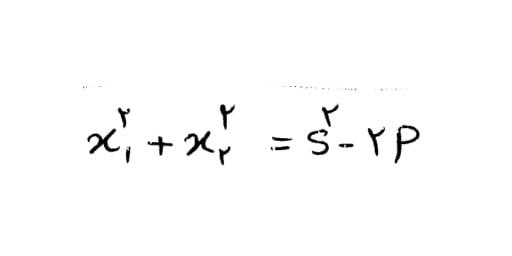 x₁^۲ + x_۲^۲ = S^۲ - ۲P